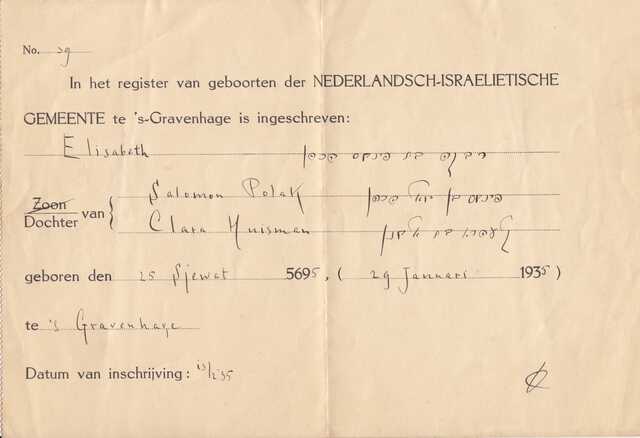 No. 29
In het register van geboorten der NEDERLANDSCH-ISRAELIETISCHE
GEMEENTE te 's-Gravenhage is ingeschreven:
Elisabeth
Zoon
Dochter van { Salomon Polak
Clara Huisman
geboren den 25 Sjewat 5695, ( 29 Januari 1935 )
te 's Gravenhage
Datum van inschrijving: 13/2 '35